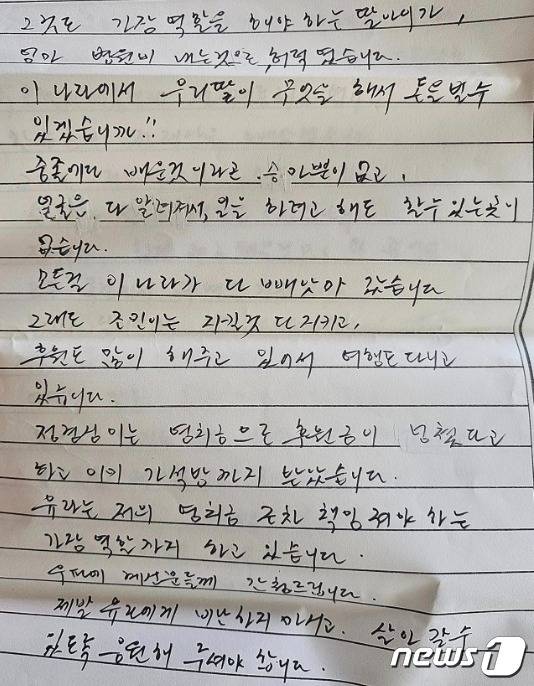 그것도 가장 역활을 해야 하는 딸아이가,
엄마 병원비 내는것으로, 허덕 였습니다.
이 나라에서 우리딸이 무엇을 해서 돈을벌수
있겠습니까!!
중졸에다 배운것이라곤. 승마뿐이 없고,
얼굴은 다 알려져서, 일을 하려고 해도 할수 있는곳이
없습니다.
모든걸 이 나라가 다 빼앗아 갔습니다
그래도 조민이는 자길것 다 지키고,
후원도 많이 해주고 있어서 여행도 다니고
있습니다.
정경심이는 영치금으로 후원금이 넘쳤다고
하고 이미 가석방까지 받았습니다.
유라는 저의 영치금 조차 책임 져야 하는
가장 역할까지 하고 있습니다.
우파에 계신분들께 간청드립니다.
제발 유라에게 비난하지 마시고. 살아 갈수
있도록 응원해 주셔야 합니다.
news1